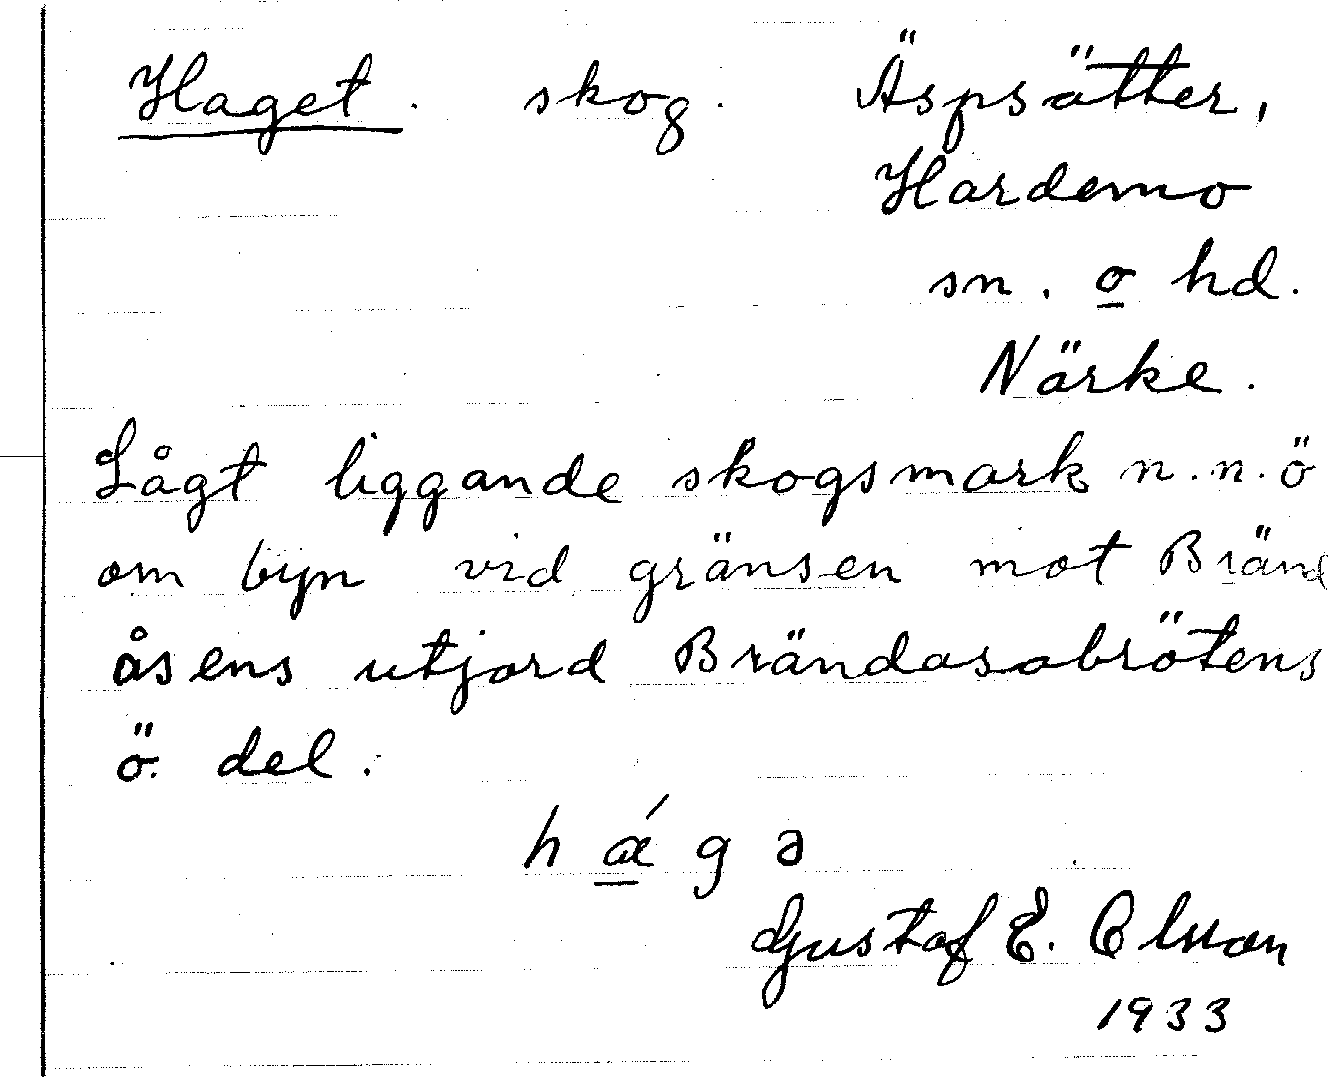 Haget. skog. Äspsätter,
Hardemo
sn. o hd.
Närke.
Lågt liggande skogsmark n.n.ö
om byn vid gränsen mot Bränd
åsens utjord Brändasabrötens
ö. del.
hǽgə
Gustaf E. Olsson
1933